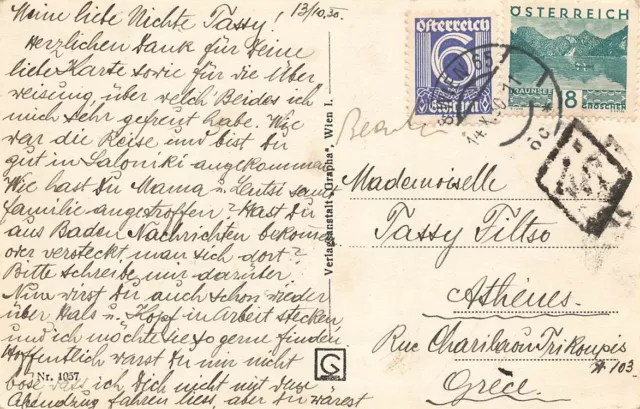 Meine liebe Nichte Tassy! 13/10.30.
Herzlichen Dank für Deine
liebe Karte sowie für die Über
weisung, über welch' Beides ich
mich sehr gefreut habe. Wie
war die Reise und bist Du
gut in Saloniki angekommen
Wie hast Du Mama u. samt
familie angetroffen? Hast Du
aus Baden Nachrichten bekommen
oder versteckt man sich dort?
Bitte schreibe mir darüber.
Nun wirst Du auch schon wieder
über Hals u. Kopf in Arbeit stecken
und ich möchte sie so gerne finden
Hoffentlich warst Du mir nicht
böse dass ich Dich nicht mit dem
Abendzug fahren liess, aber Du wärest
Nr. 1057
Verlagsanstalt „Grapha", Wien I.
G
Österreich
6
Groschen
ÖSTERREICH
TRAUNSEE
18
GROSCHEN
Mademoiselle
Tassy Tiltso
Athènes.
Rue Charilaou Trikoupis
103
Grèce.